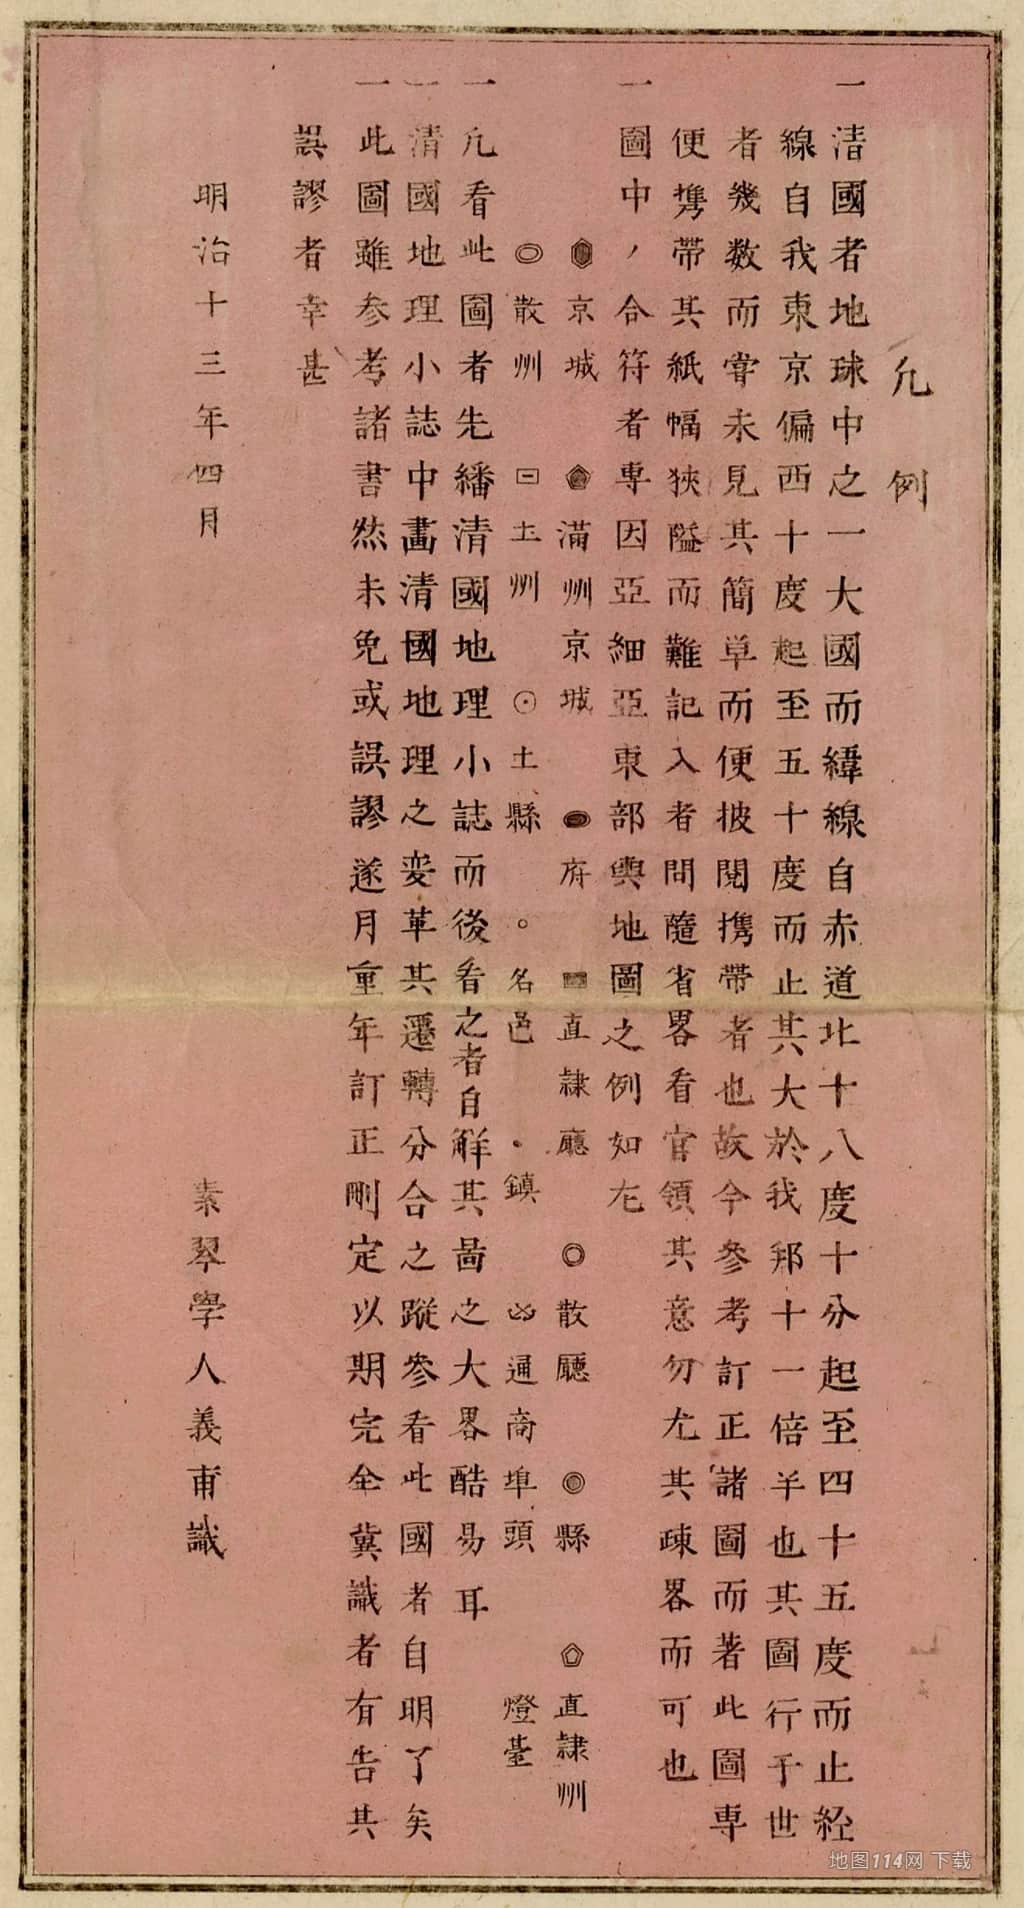 凢例
一 清國者地球中之一大國而緯線自赤道北十八度十分起至四十五度而止経
線自我東京偏西十度起至五十度而止其大於我邦十一倍半也其圖行于世
者幾数而甞未見其簡单而便披閲携帶者也故今參考訂正諸圖而著此圖専
便携帶其紙幅狹隘而難記入者間隨省畧看官領其意勿尤其疎畧而可也
一 圖中ノ合符者専因亞細亞東部輿地圖之例如左
京城 満州京城 府 直隷廳 ◎散廳 ◎縣 直隷州
散州 土州 ⊙土縣 ○名邑 ・鎮 通商埠頭 燈臺
一 凢看此圖者先繙清國地理小誌而後看之者自解其啚之大畧酷易耳
一 清國地理小誌中畵清國地理之変革其遷轉分合之蹤參看此國者自明了矣
一 此圖雖参考諸書然未免或誤謬遂月重年訂正刪定以期完全冀識者有告其
誤謬者幸甚
明治十三年四月 素翠學人義甫識
地图114网 下载